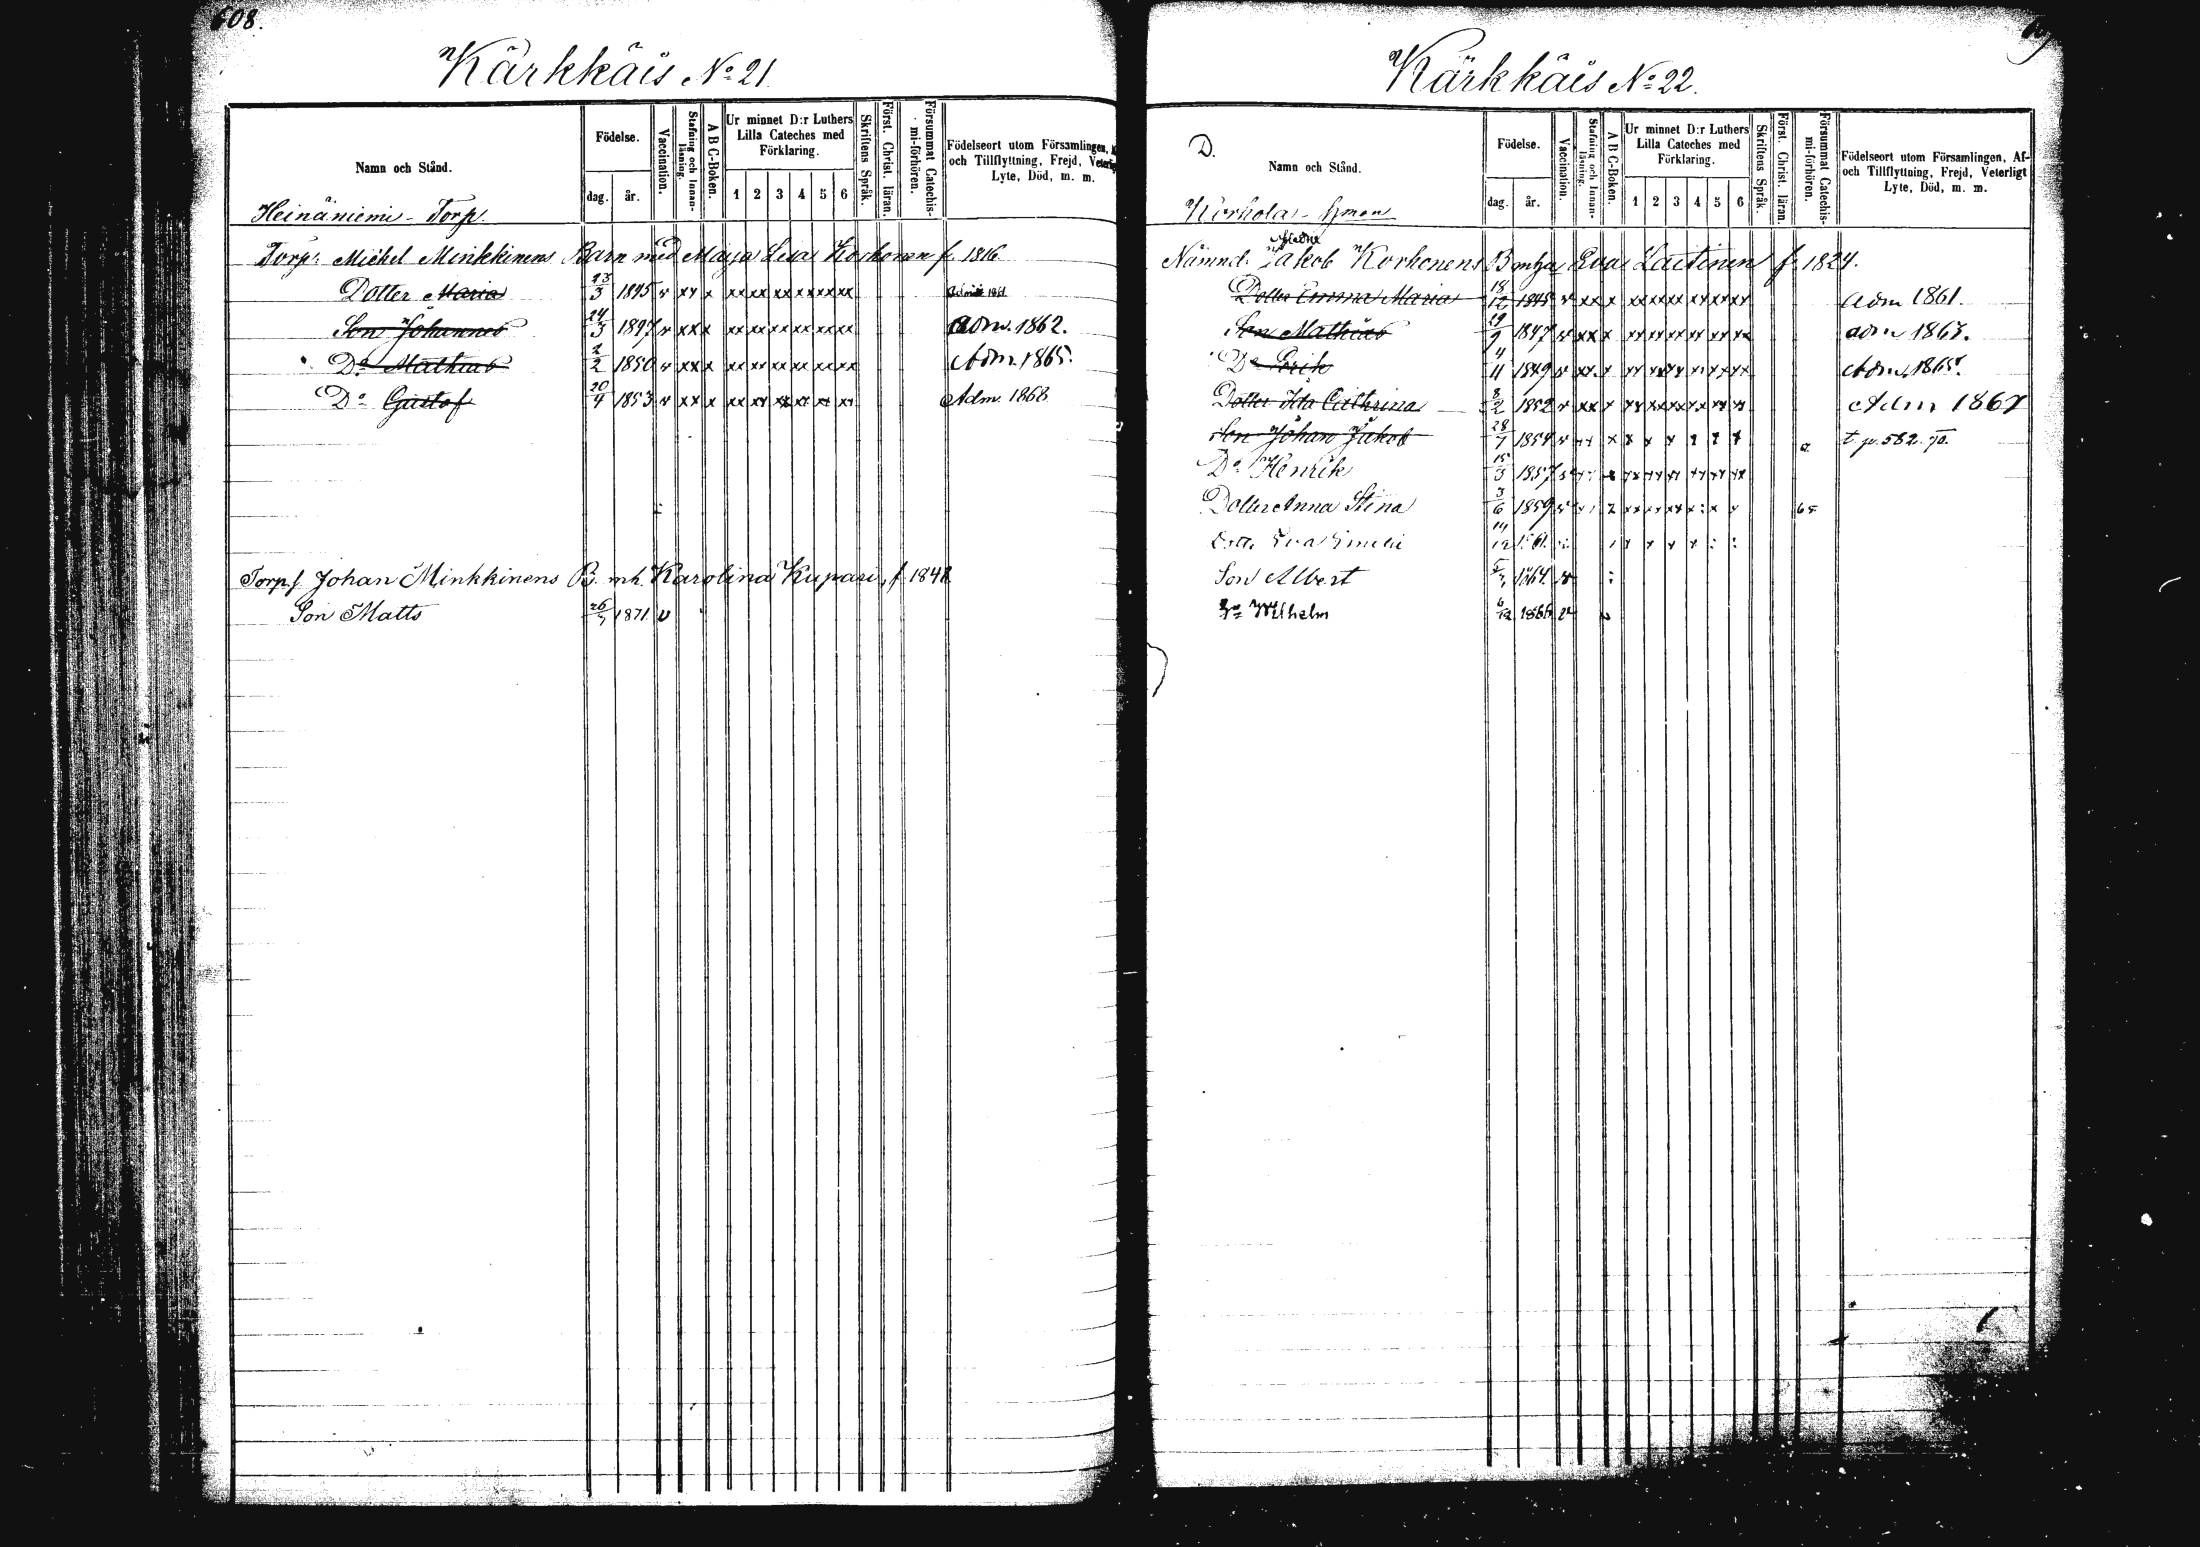 608.
Kärkkäis No 21
Namn och Stånd.
Födelse.
dag. år.
Vaccination.
Stafning och Innanläsning.
A B C-Boken.
Ur minnet D:r Luthers Lilla Cateches med Förklaring.
1 2 3 4 5 6
Skriftens Språk.
Först. Christ. läran.
Försummat Catechismi-förhören.
Födelseort utom Församlingen,
och Tillflyttning, Frejd,
Lyte, Död, m. m.
Heinäniemi - Torp.
Torp: Michel Minkkinens Barn med Maja Lisa Korhonen f. 1816
Dotter Maria 3 1845 v xx x xx xx xx xx xx xx
Son Johannes 24/3 1847 v xx x xx xx xx xx xx xx Adm. 1862.
Do Mathias 2/2 1850 v xx x xx xx xx xx xx xx Adm. 1865.
Do Gustaf 20/4 1853 v xx x xx xx xx xx xx xx Adm. 1868
Torp.f. Johan Minkkinens B. mh. Karolina Kupari, f. 1848
Son Matts 26/7 1871. v
Kärkkäis No 22.
D.
Namn och Stånd.
Födelse.
dag. år.
Vaccination.
Stafning och Innanläsning.
A B C-Boken.
Ur minnet D:r Luthers Lilla Cateches med Förklaring.
1 2 3 4 5 6
Skriftens Språk.
Först. Christ. läran.
Försummat Catechismi-förhören.
Födelseort utom Församlingen, Af-
och Tillflyttning, Frejd, Veterligt
Lyte, Död, m. m.
Korhola - Hman
Nämnd. Jakob Korhonens B mha Eva Laitinen f. 1824.
Dotter Emma Maria 18/12 1845 v xx x xx xx xx xx xx xx Adm 1861.
Son Mathias 19/9 1847 v xx x xx xx xx xx xx xx Adm
Do Erik 4/11 1849 v xx x xx xx xx xx xx xx Adm. 1865.
Dotter Ida Cathrina 8/2 1852 v xx x xx xx xx xx xx xx Adm 1867
Son Johan Jakob 28/7 1854 v t. p. 582. 70.
Do Henrik 15/3 1857
Dotter Anna Stina 3/6 1859 65
Dotter Eva Emelie
Son Albert 1864. v
Do Wilhelm 6/12 1866 v